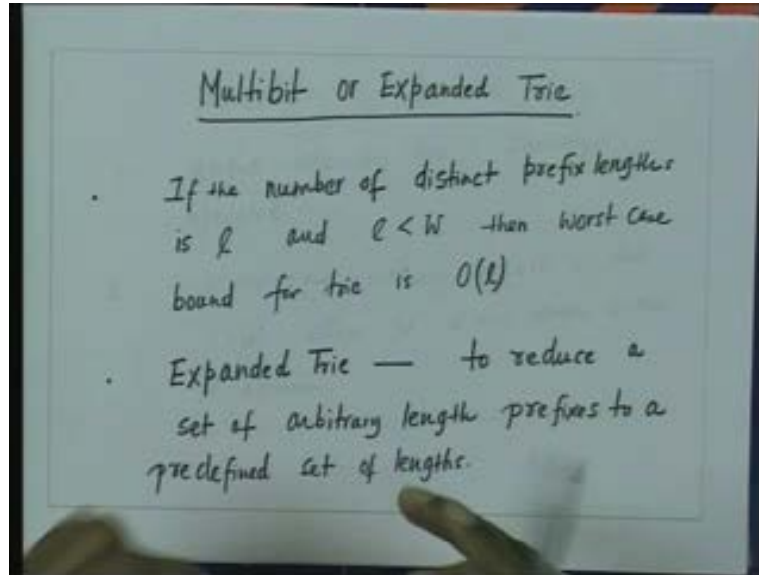 Multibit or Expanded Trie
. If the number of distinct prefix lengths
is l and l < W then worst case
bound for trie is O(l)
. Expanded Trie — to reduce a
set of arbitrary length prefixes to a
predefined set of lengths.